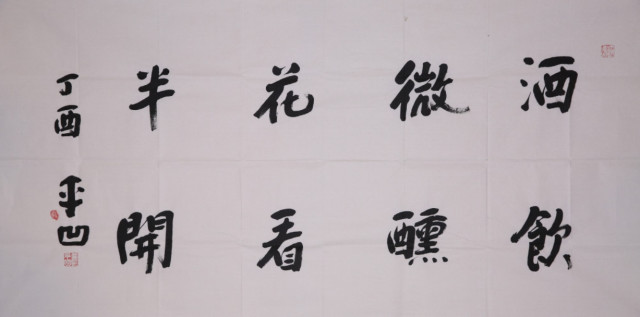 酒飲
微醺
花看
半開
丁酉 平凹